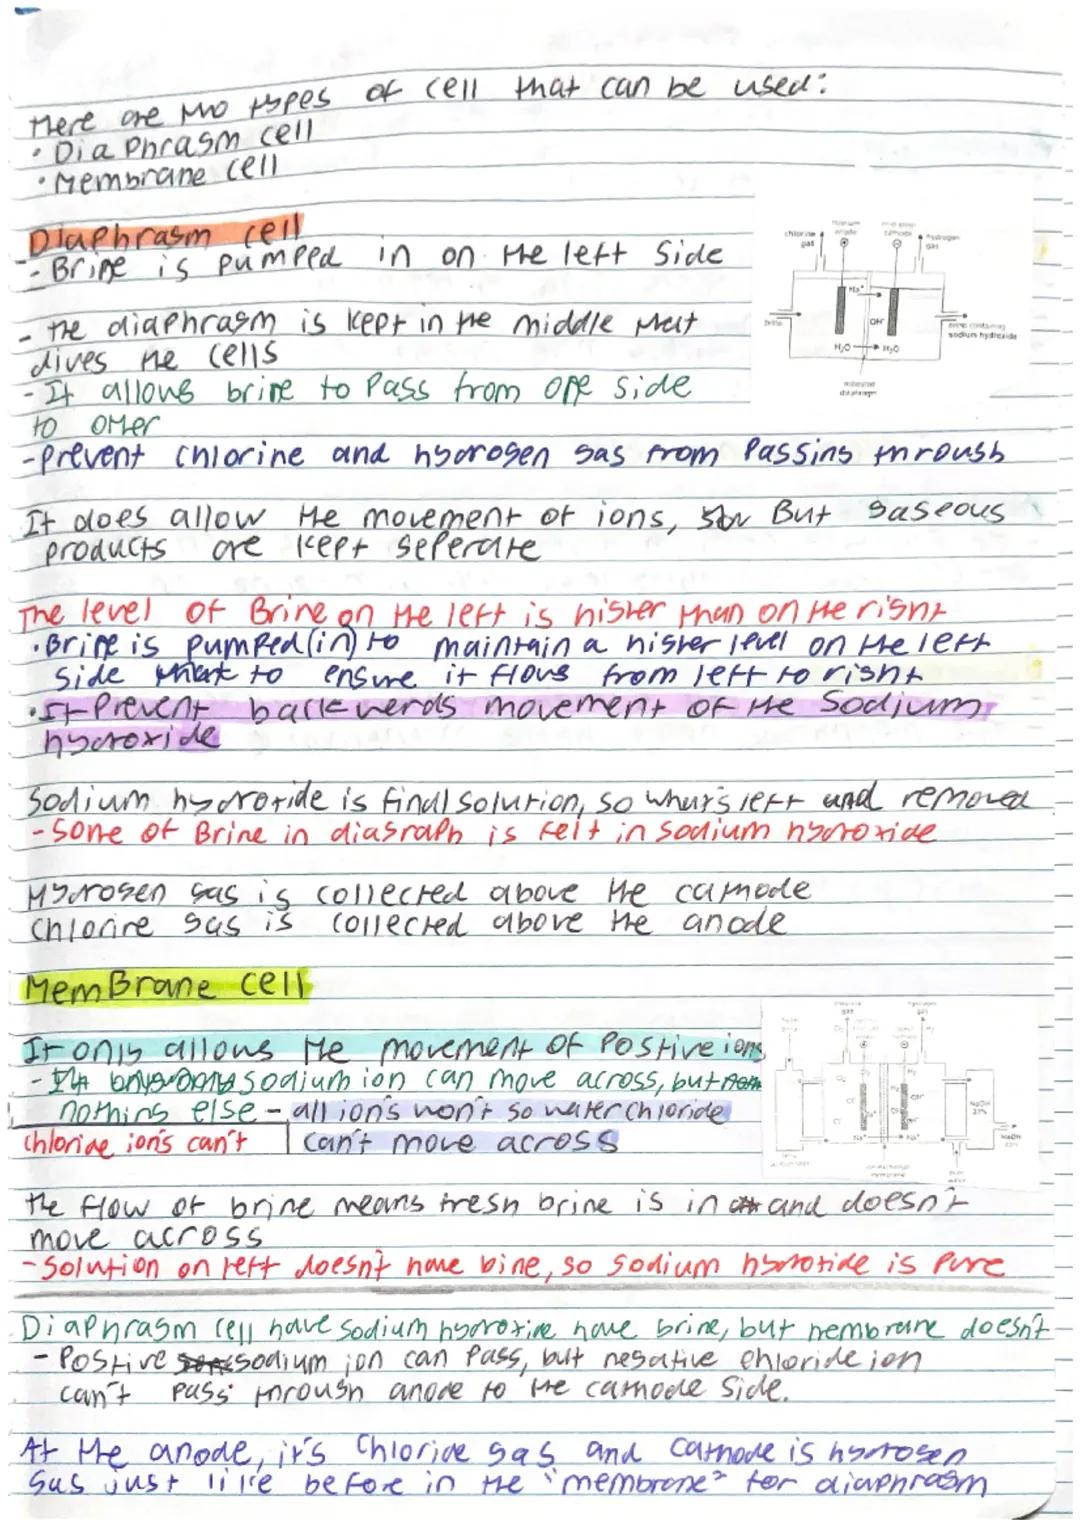 There are two types of cell that can be used:
• Diaphragm cell
• Membrane cell
Diaphragm cell
- Brine is pumped in on the left side
chlorine gas
titanium anode
cathode
hydrogen gas
Na⁺
brine
OH⁻
H₂O → H₂O
brine containing sodium hydroxide
diaphragm
- the diaphragm is kept in the middle that
dives the cells
- It allows brine to pass from one side
to other
- Prevent chlorine and hydrogen gas from passing through
It does allow the movement of ions, But gaseous
products are kept seperate
The level of Brine on the left is higher than on the right
• Brine is pumped (in) to maintain a higher level on the left
side to ensure it flows from left to right
• It Prevent backwerds movement of the Sodium
hydroxide
Sodium hydroxide is final solution, so what's left and removed
- Some of Brine in diagraph is felt in Sodium hydroxide
Hydrogen gas is collected above the cathode
Chlorine gas is collected above the anode
MemBrane cell
It only allows the movement of Postive ions
- sodium ion can move across, but
nothing else - all ion's won't so water chloride
chloride ion's can't | can't move across
NaOH
membrane
the flow of brine means fresh brine is in and doesn't
move across
- Solution on left doesn't have bine, so Sodium hydroxide is Pure
Diaphragm cell have sodium hydroxide have brine, but membrane doesn't
- Postive sodium ion can pass, but negative chloride ion
can't pass through anode to the cathode side.
At the anode, it's Chloride gas and Cathode is hydrogen
gas just like before in the "membrane" for diaphragm